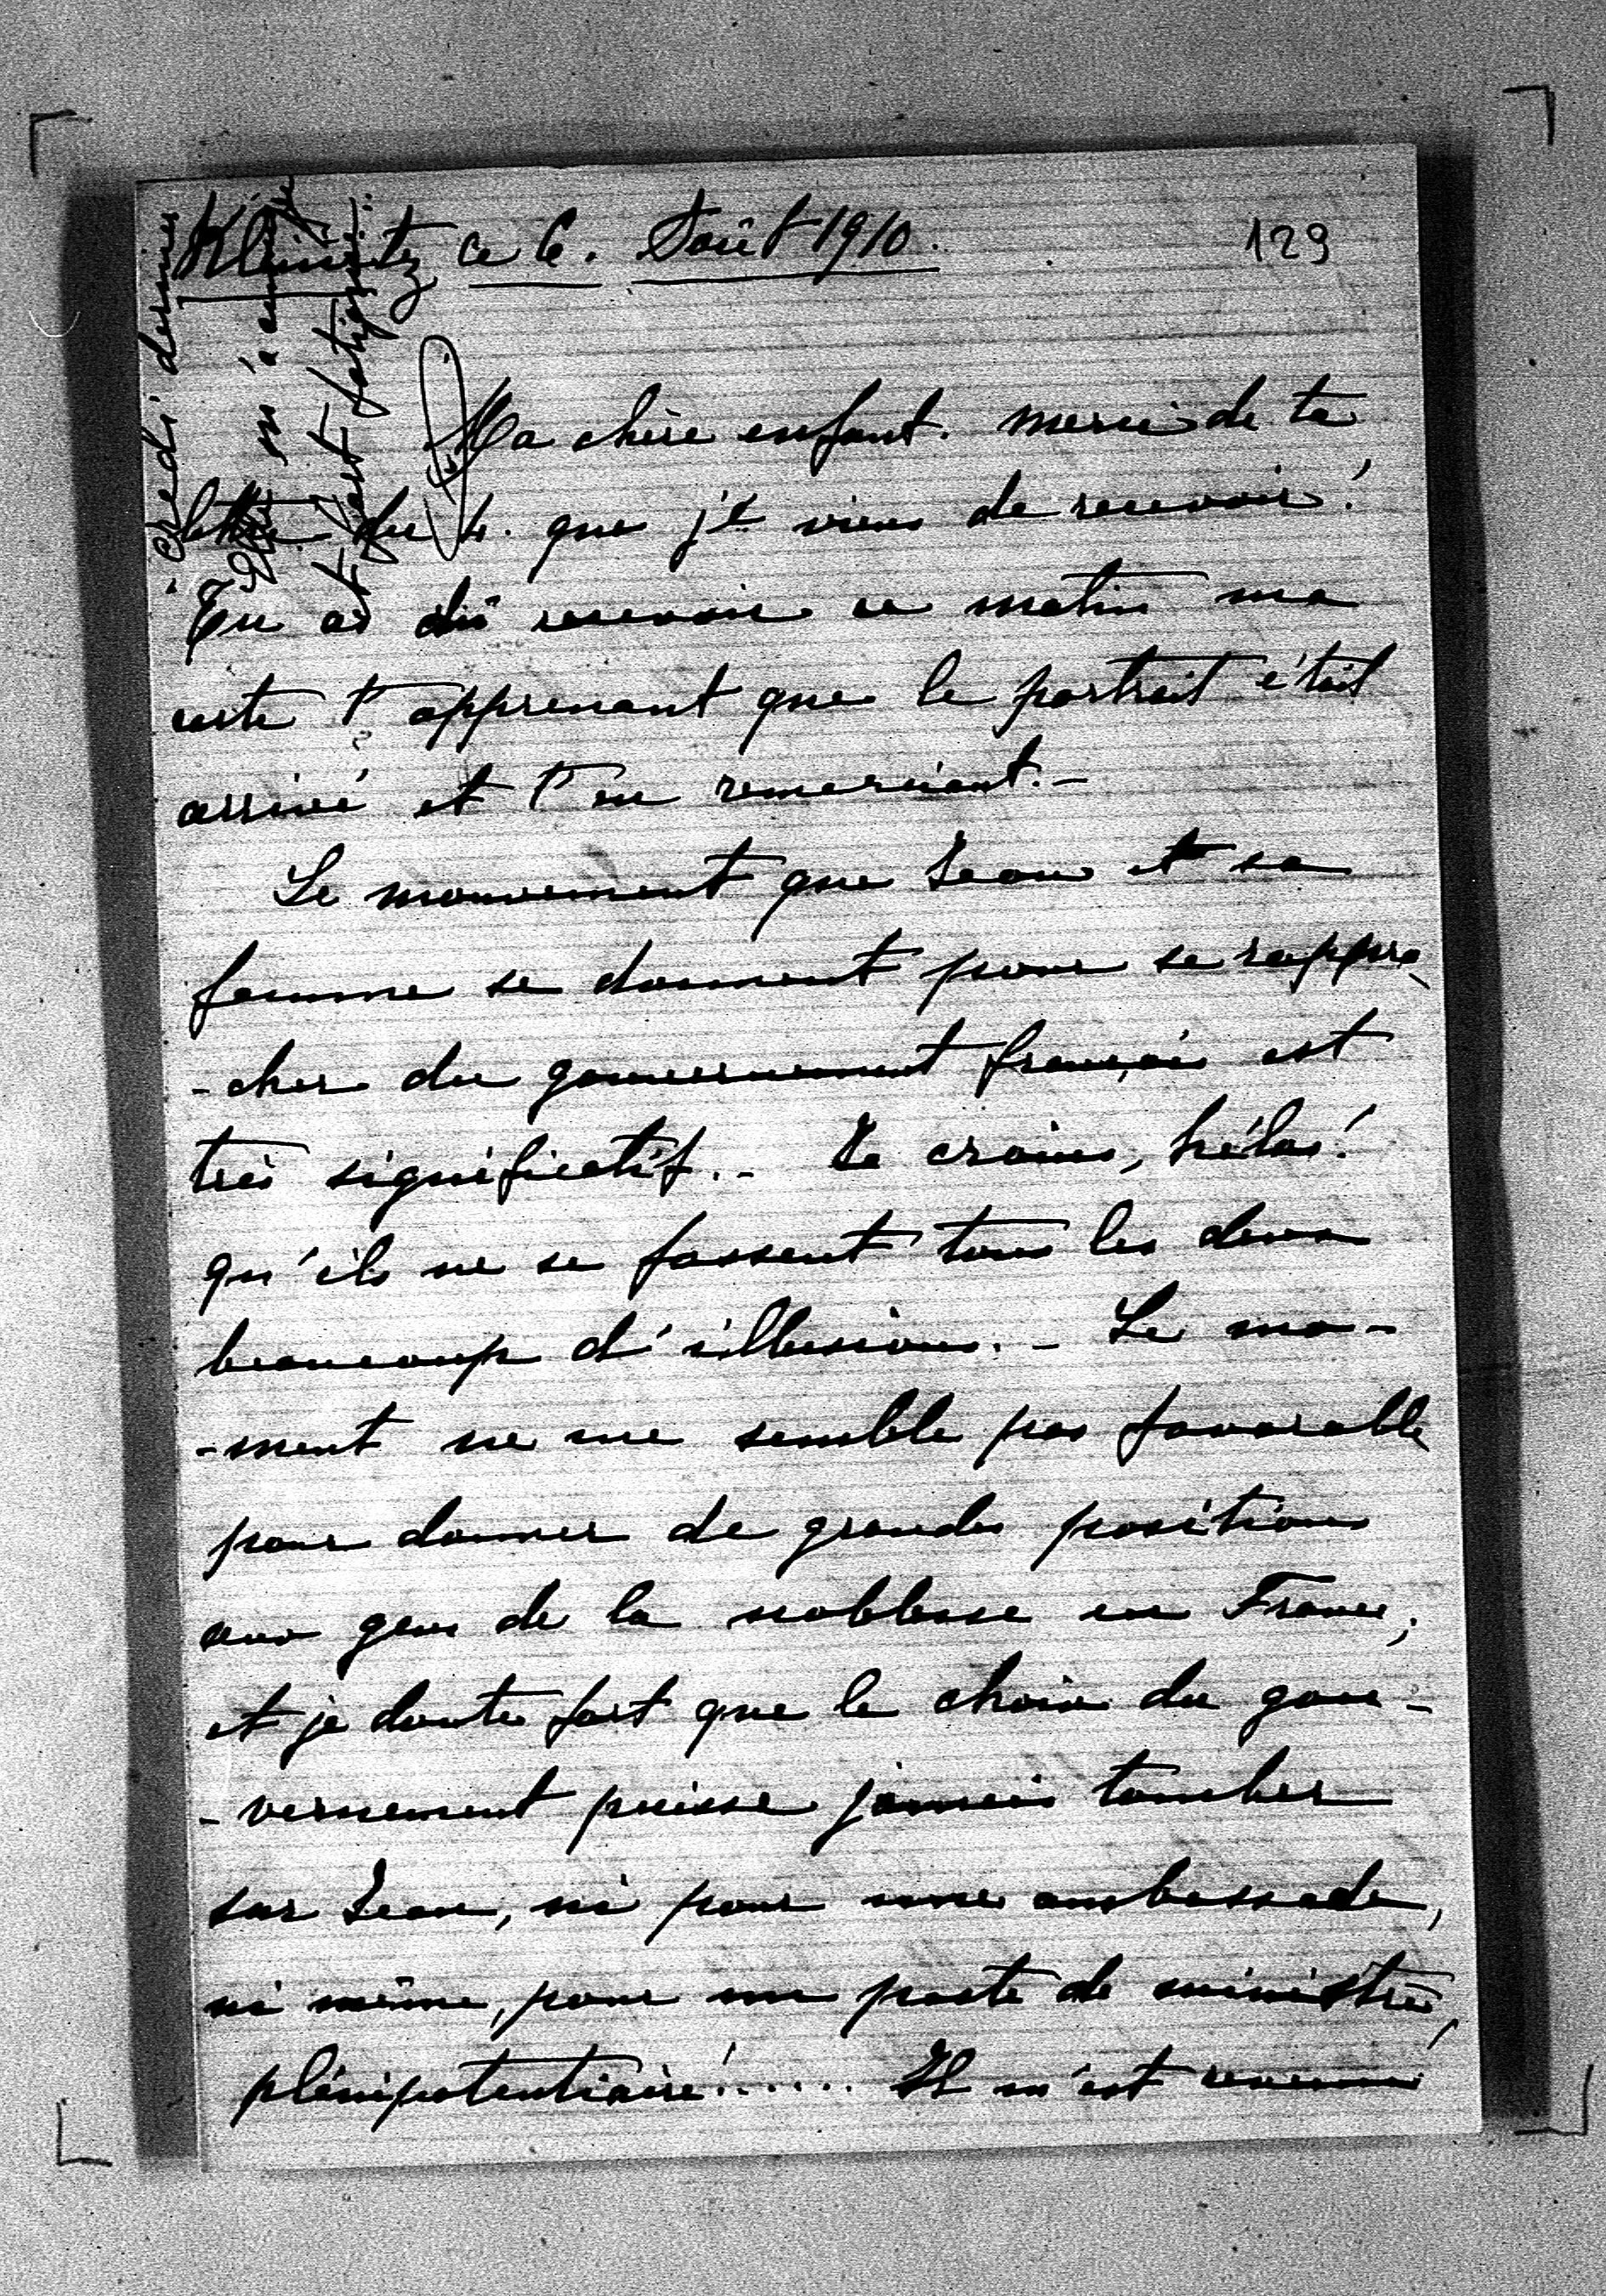 ce 6. Août 1910.
129
Ma chère enfant. merci de ta
lettre du 4. que je viens de recevoir!
Tu as dû recevoir ce matin ma
carte t'apprenant que le portrait était
arrivé et t'en remerciant.-
Le mouvement que Jean et sa
femme se donnent pour se rappro
-cher du gouvernement français est
très significatif.- Je crains, hélas!
qu'ils ne se fassent tous les deux
beaucoup d'illusions.- Le mo-
-ment ne me semble pas favorable
pour donner de grandes positions
aux gens de la noblesse en France;
et je doute fort que le choix du gou-
-vernement puisse jamais tomber
sur Jean, ni pour une ambassade,
ni même, pour un poste de ministre
plénipotentiaire!..... Il m'est revenu